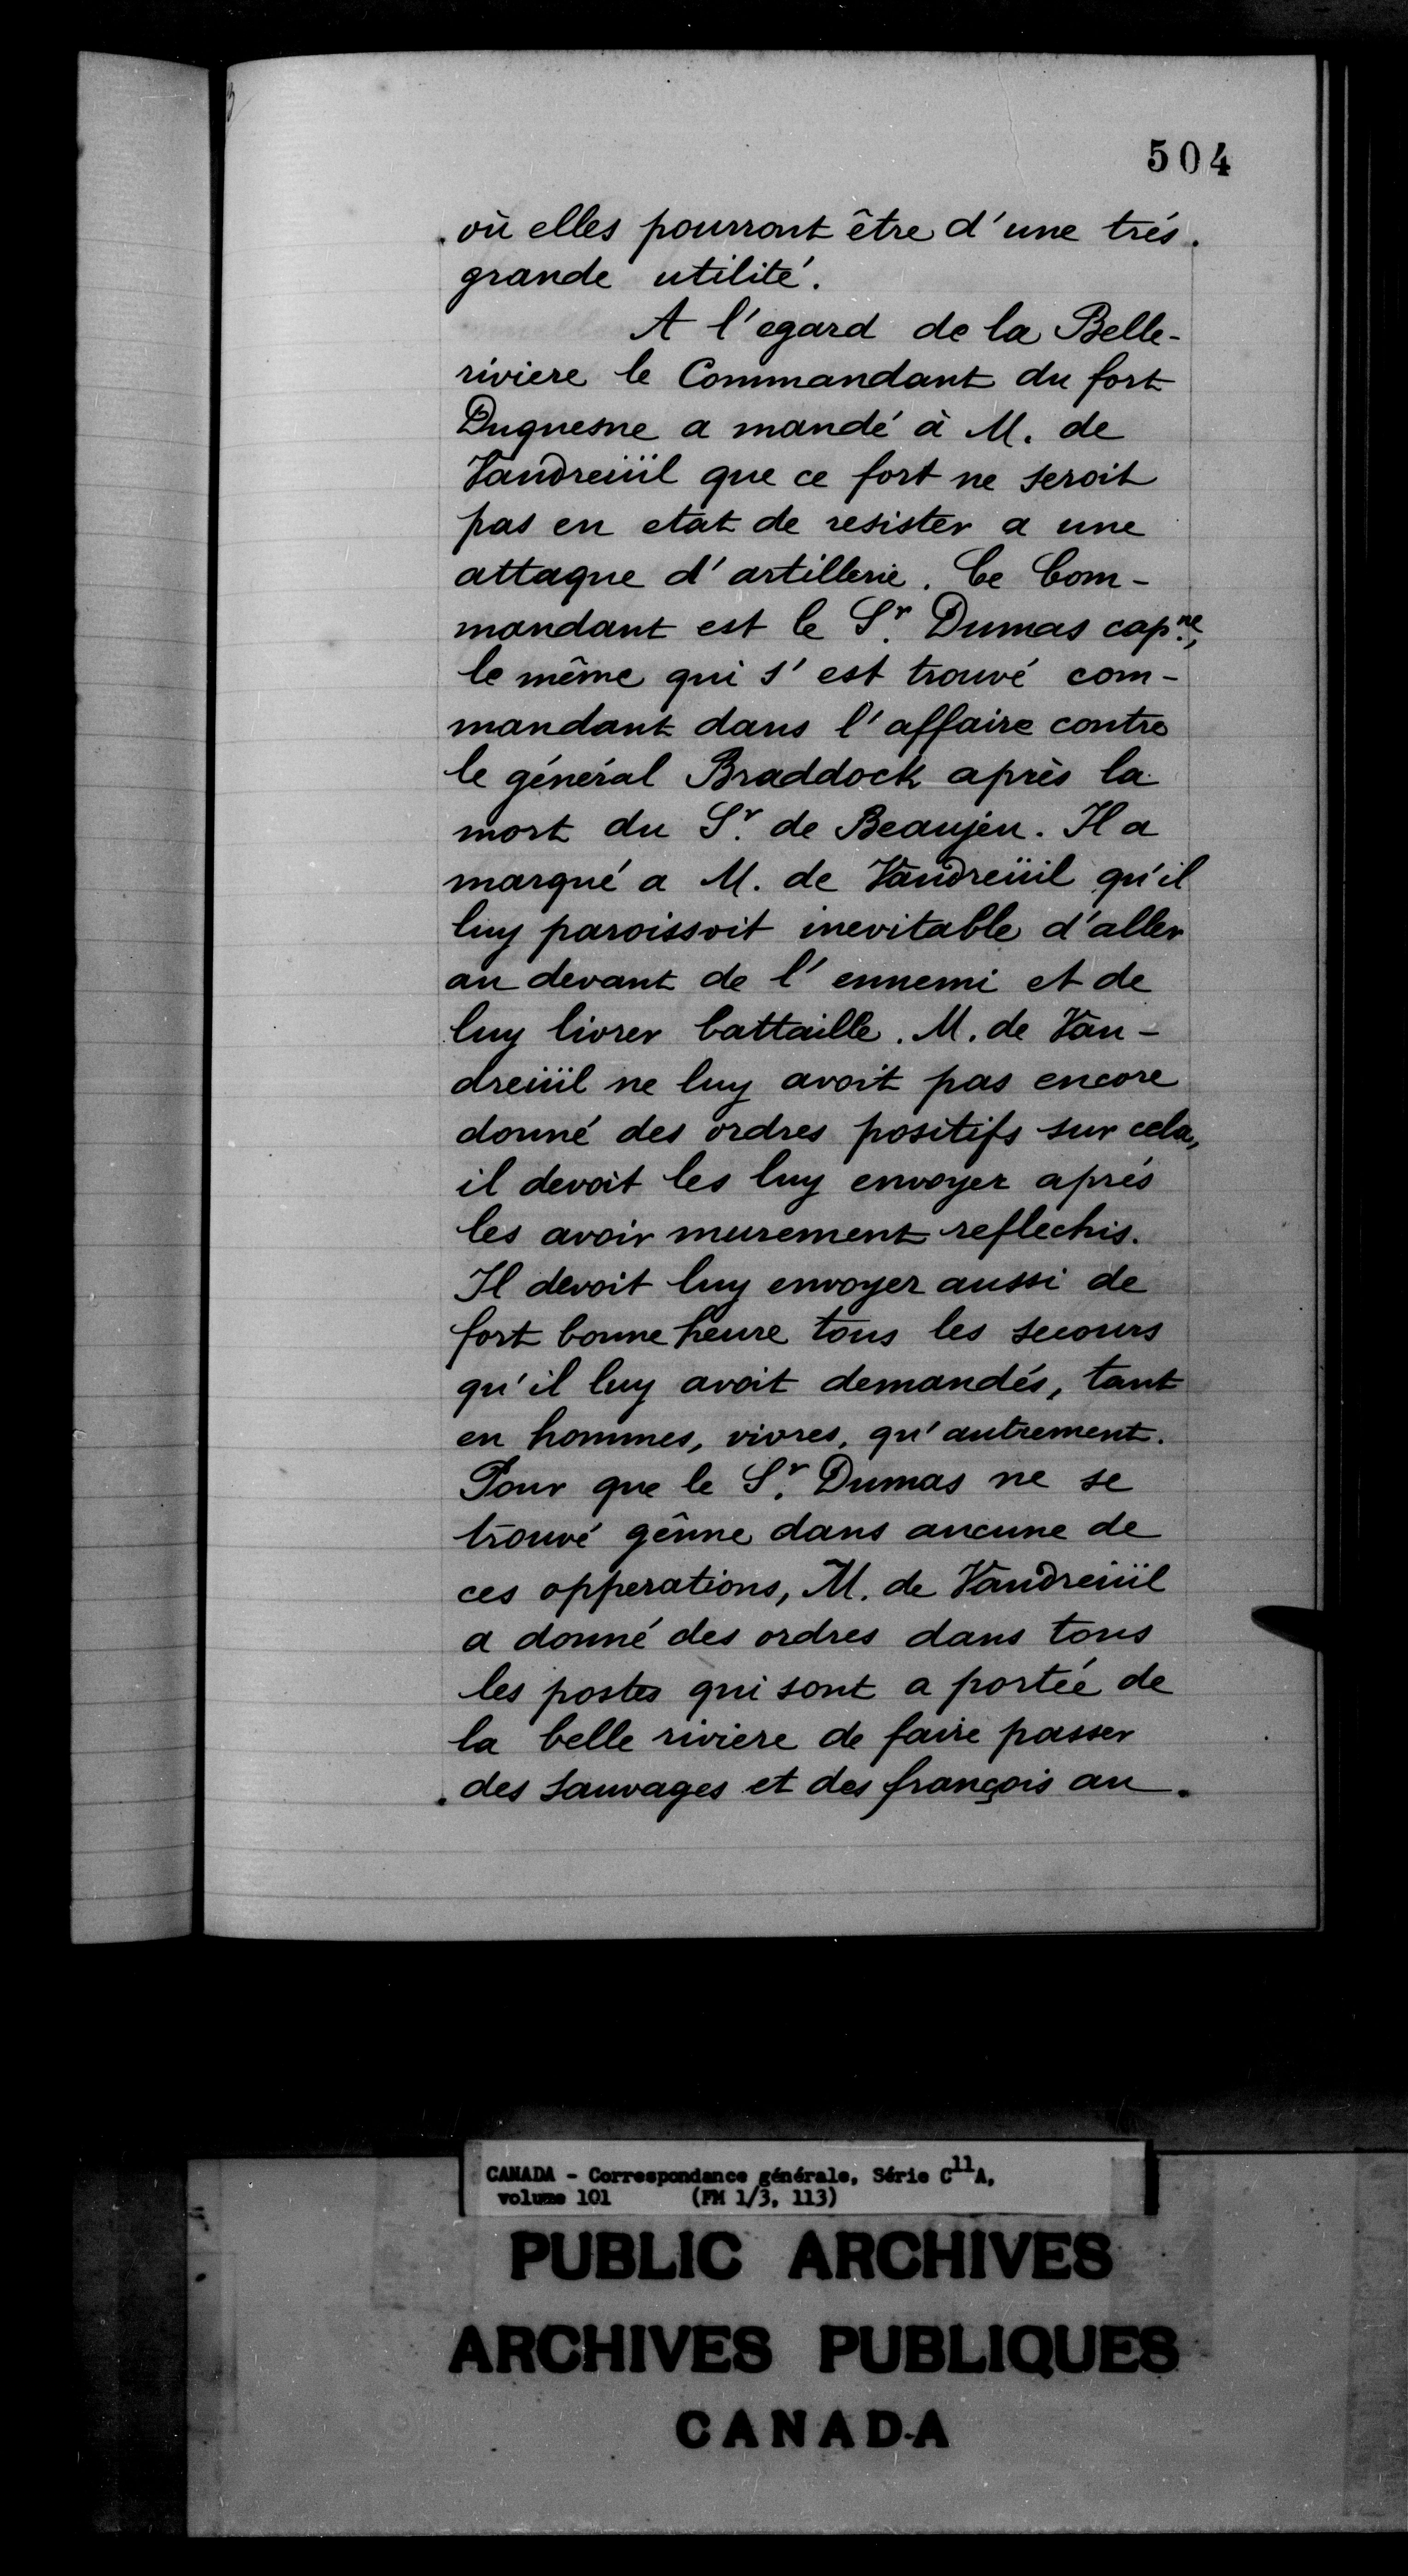 504
où elles pourront être d'une trés
grande utilité.
A l'egard de la Belle-
riviere le Commandant du fort
Duquesne a mandé à M. de
Vaudreüil que ce fort ne seroit
pas en etat de resister a une
attaque d'artillerie. Ce Com-
mandant est le Sr. Dumas capne.,
le même qui s'est trouvé com-
mandant dans l'affaire contre
le général Braddock après la
mort du Sr. de Beaujeu. Il a
marqué a M. de Vaudreüil qu'il
luy paroissoit inevitable d'aller
au devant de l'ennemi et de
luy livrer battaille. M. de Vau-
dreüil ne luy avoit pas encore
donné des ordres positifs sur cela,
il devoit les luy envoyer aprés
les avoir murement reflechis.
Il devoit luy envoyer aussi de
fort bonne heure tous les secours
qu'il luy avoit demandés, tant
en hommes, vivres, qu'autrement.
Pour que le Sr. Dumas ne se
trouvé gênne dans aucune de
ces opperations, M. de Vaudreüil
a donné des ordres dans tous
les postes qui sont a portée de
la belle riviere de faire passer
des Sauvages et des françois au
CANADA - Correspondance générale, Série C11A,
volume 101 (FM 1/3, 113)
PUBLIC ARCHIVES
ARCHIVES PUBLIQUES
CANADA